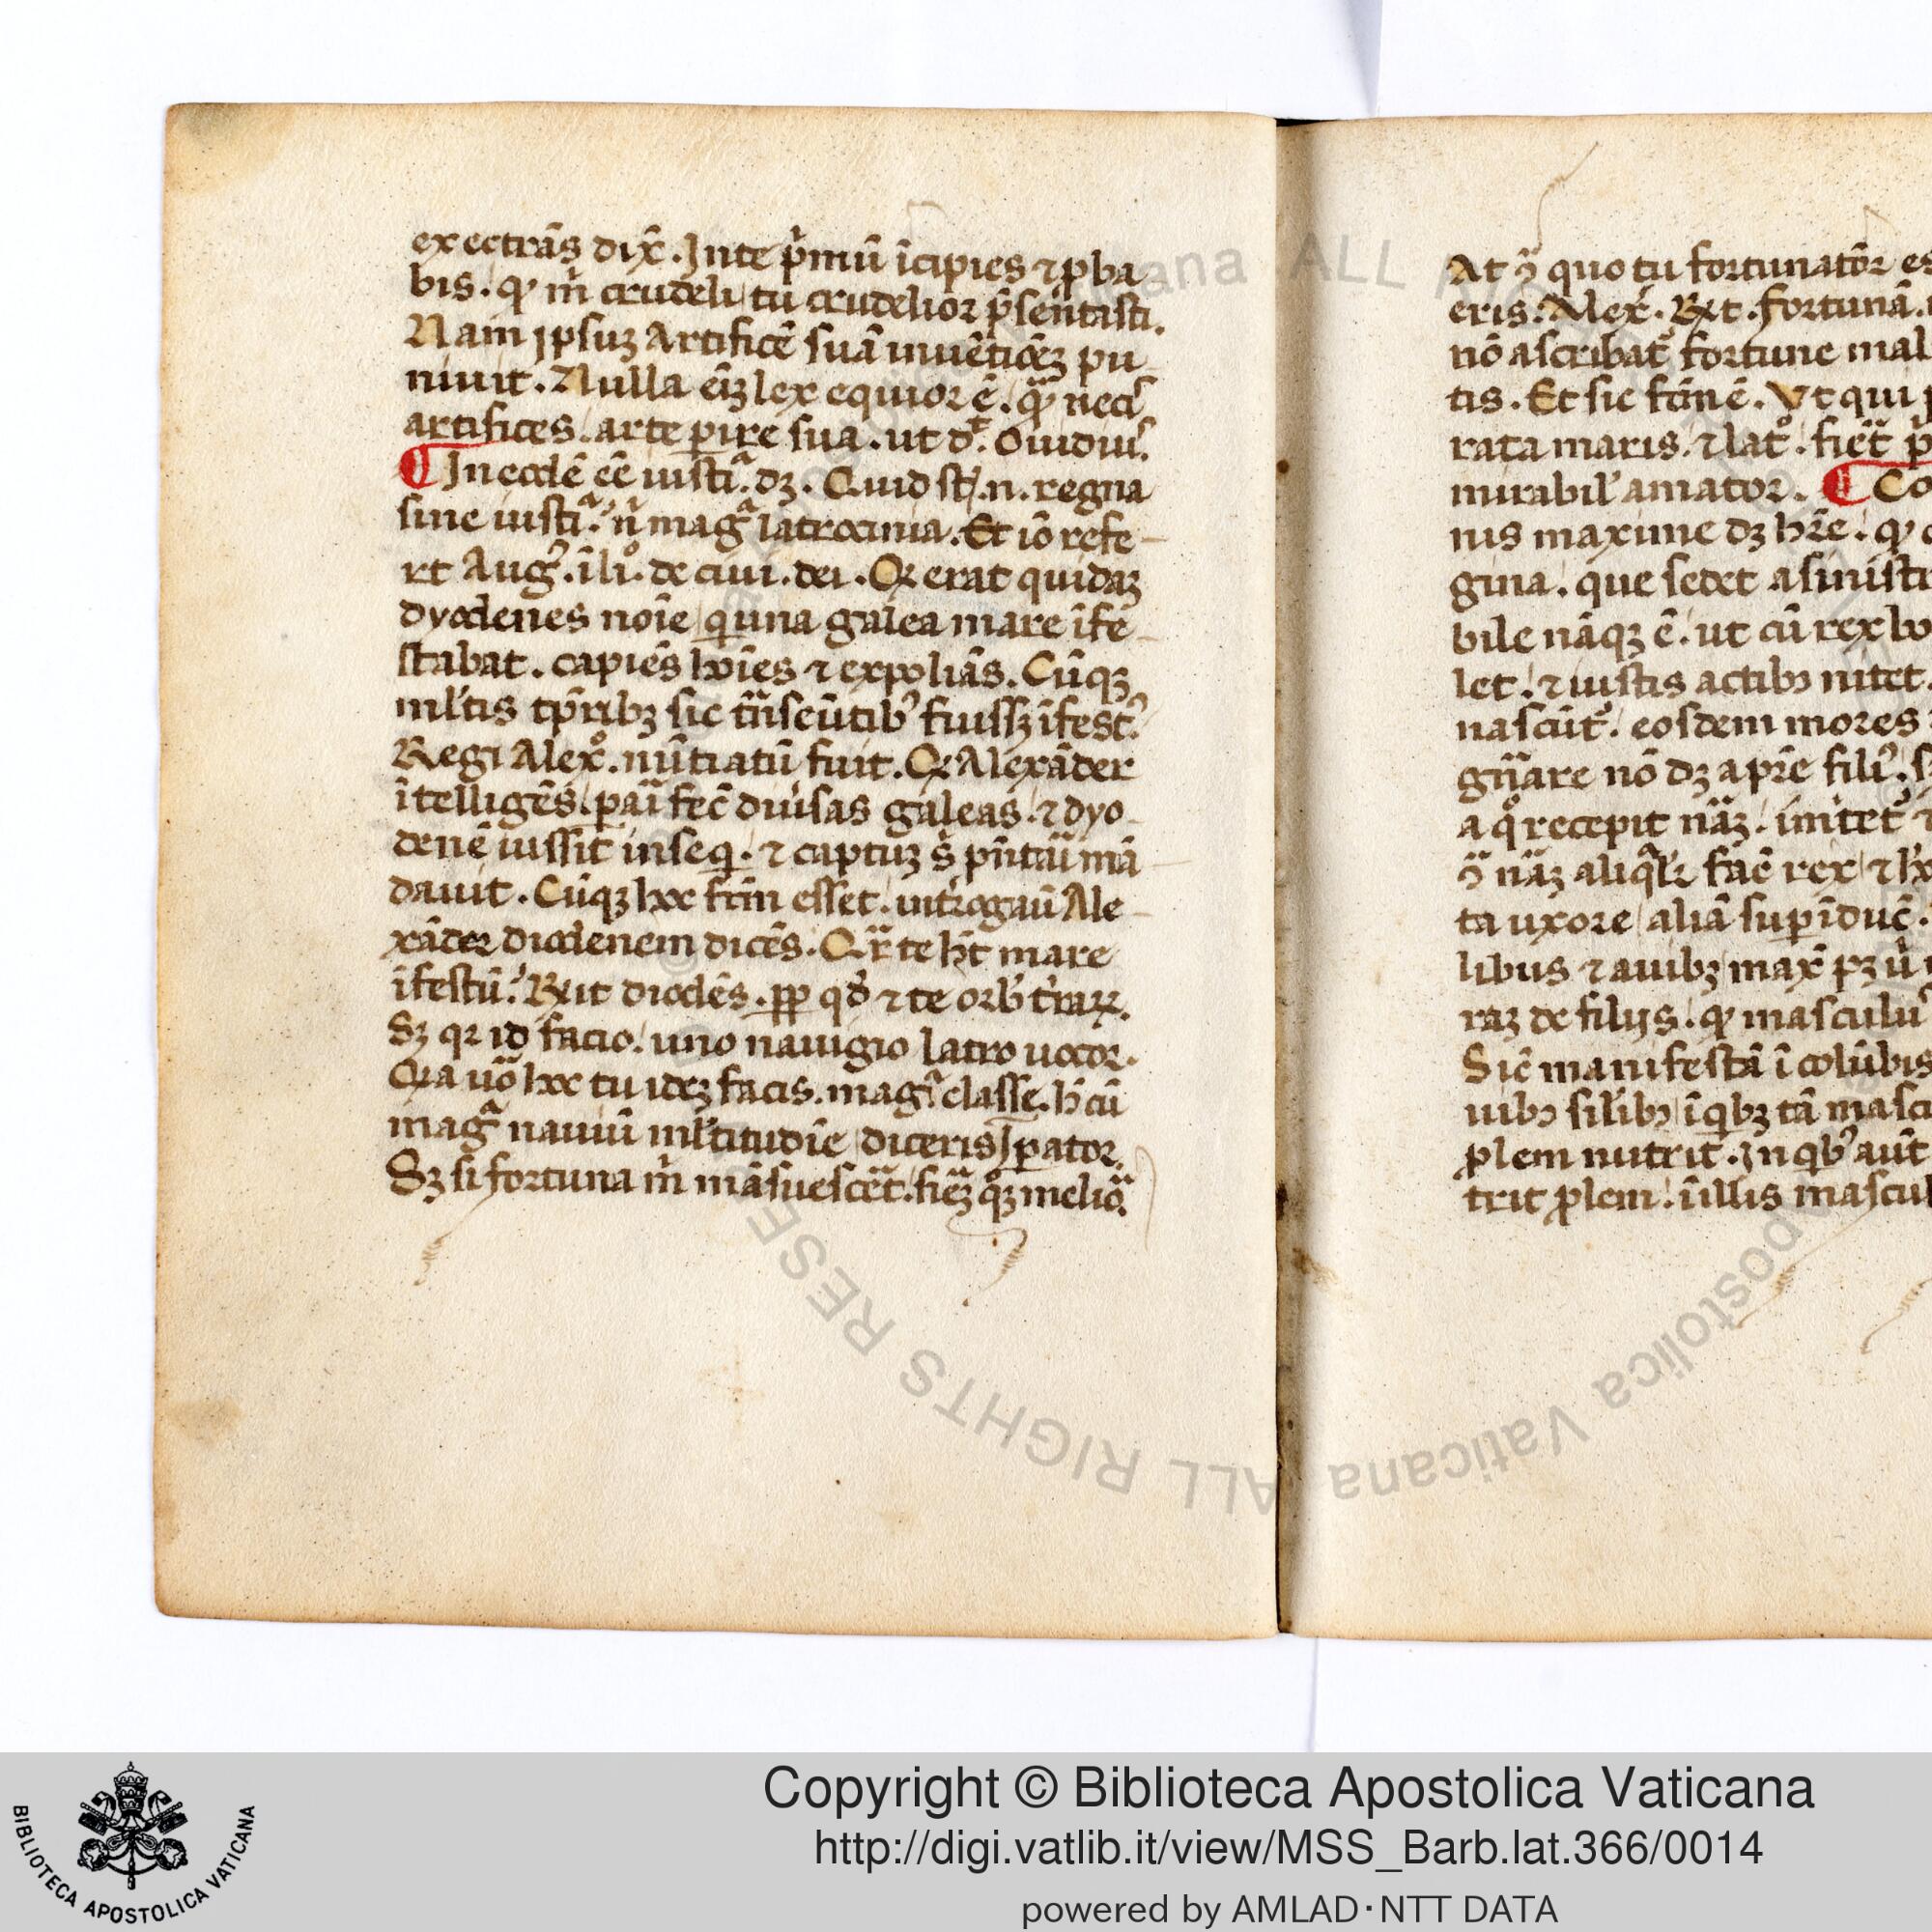 exectrãs dix̃. Jn te p̾mũ ĩcipies ⁊ ꝓba
bis. qͥ m̾ crudeli tu crudelior p̃sentasti.
Nam ipsuꝫ Artificẽ suã inuẽtiõeꝫ pu
niuit. Nulla eĩꝫ lex equior ẽ. qᷓ neci
artifices. arte ꝑire sua. ut dͭ. Ouidiuſ.
¶ Jn eodẽ eẽ iustiᷓ. dꝫ. Quid st̃. n. regna
sine iustiᷓ. n̾ magᷓ latrocinia. Et iõ refe
rt Augꝰ. ĩ liͦ. de ciui. dei. Qꝫ erat quidaꝫ
dyodenes noĩe q̲ una galea mare ĩfe
stabat. capiẽs hoĩes ⁊ expoliãs. Cũqꝫ
ml̾tis tp̃ribꝫ sic tñseũtibꝰ fuissꝫ ĩfestꝰ.
Regi Alexͦ. nũtiatũ fuit. Qꝫ Alexãder
ĩtelligẽs. ꝑaĩ fec̃ diũsas galeas. ⁊ dyo
denẽ iussit inseq̲. ⁊ captuꝫ s̾ pñtaĩ mã
dauit. Cũqꝫ hoc fcm̃ esset. int̾rogaũ Ale
xãder diodenem dicẽs. Qᷓr te hꝫt mare
ĩfestũ. Rx̃it diodẽs. ꝓꝑ qd̾ ⁊ te orb̾ t̾raꝝ.
Sꝫ qꝛ id facio. uno nauigio latro uocor.
Qꝛ a uõ hoc tu ideꝫ facis. magͣ classe. h̾ cũ
magᷓ nauiũ ml̾titudĩe diceris Jꝑator.
Sꝫ si fortuna m̾ mãsuescẽt. fieꝫ qͦꝫ melioᷓ.
At ꝯͣ quo tu fortunatõr es
eris. Alex̾. Rx̃t. fortunã.
nõ ascribat᷑ fortune mal
tis. Et sic fcm̃ ẽ. Vt qui
rata maris. ⁊ latͦ. fiet̃ p̃
mirabil̾ amator. ¶ Co
nius maxime dꝫ hr̃e. qͥ
gina. que sedet a sinistr
bile nãqꝫ ẽ. ut cũ rex bo
let. ⁊ iustis actibꝫ nitet.
nascũt᷑. eosdem mores
gñare nõ dꝫ a pr̃e filiꝰ.
a qͦ recepit nãꝫ. imitet᷑
ꝯͣ nãꝫ aliqᷓl̾r fac̃ rex
ta uxore aliã suꝑĩduc̃.
libus ⁊ auibꝫ max̃ pꝫ
raꝫ de filijs. qͥ masculũ
Sic̃ manifestã ĩ colũbis
uibꝫ sil̾ibꝫ ĩ q̲bꝫ tã masc
ꝓlem nutrit. Jn qͥbꝰ aũt
trit ꝓlem. ĩ illis mascul
Copyright © Biblioteca Apostolica Vaticana
http://digi.vatlib.it/view/MSS_Barb.lat.366/0014
powered by AMLAD·NTT DATA
BIBLIOTECA APOSTOLICA VATICANA